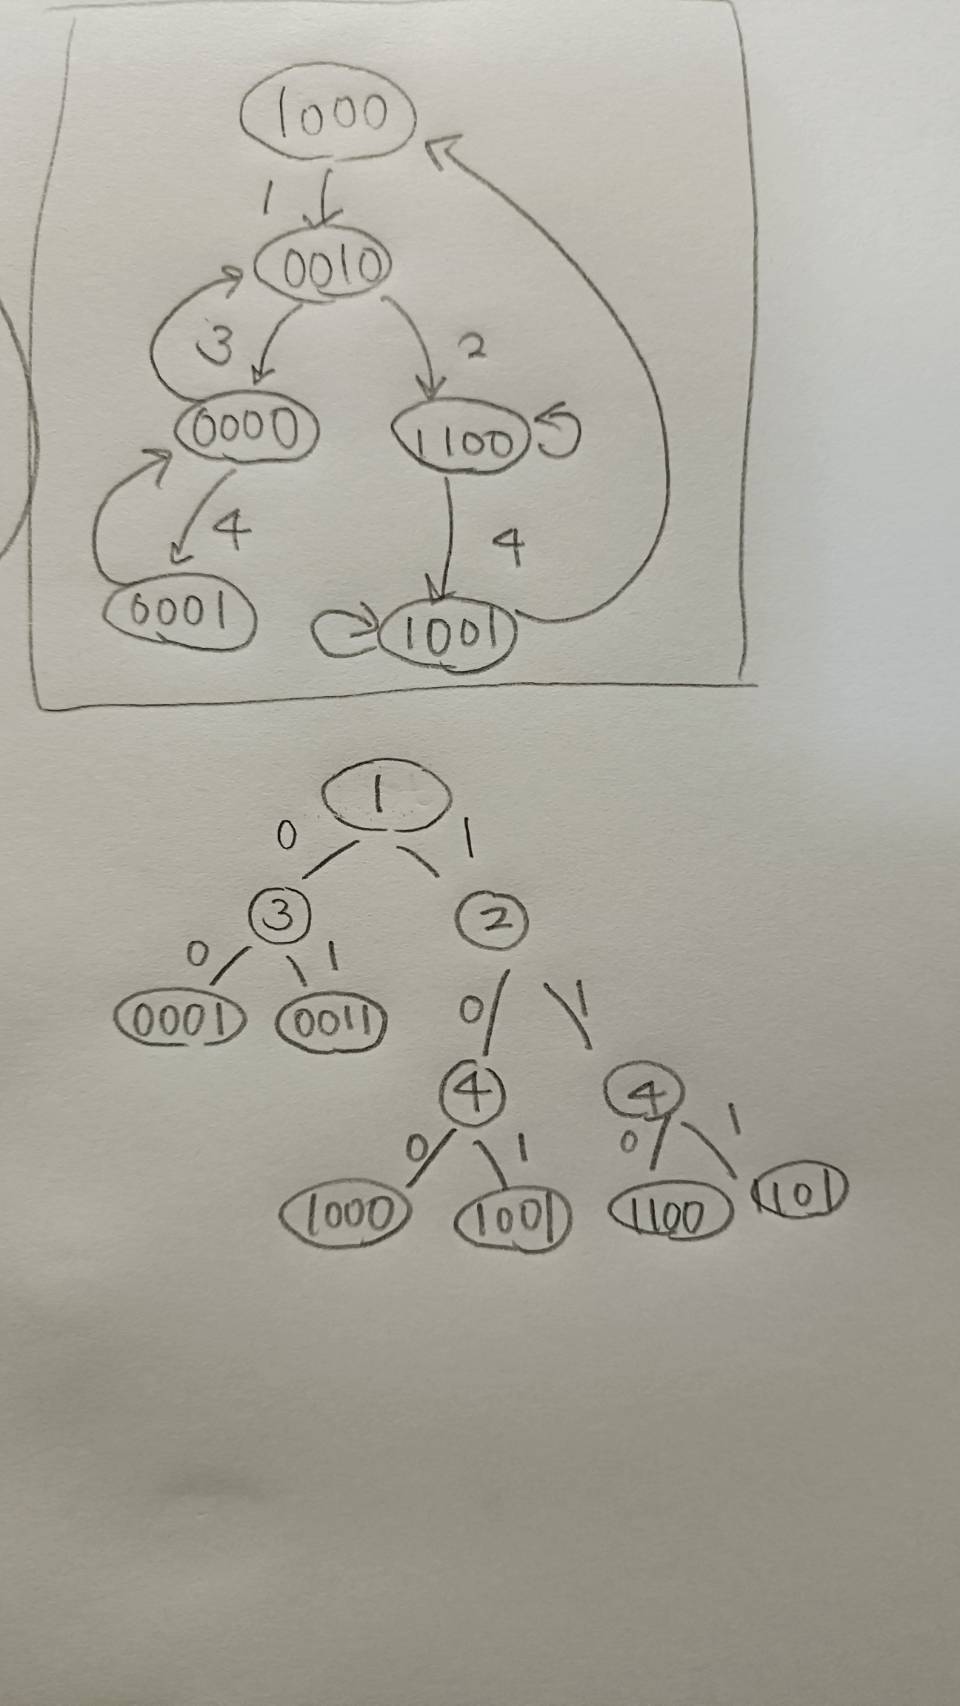 1000
1
0010
3 2
0000 1100
4 4
0001 1001
1
0 1
3 2
0 1
0001 0011
0 1
4 4
0 1 0 1
1000 1001 1100 1101